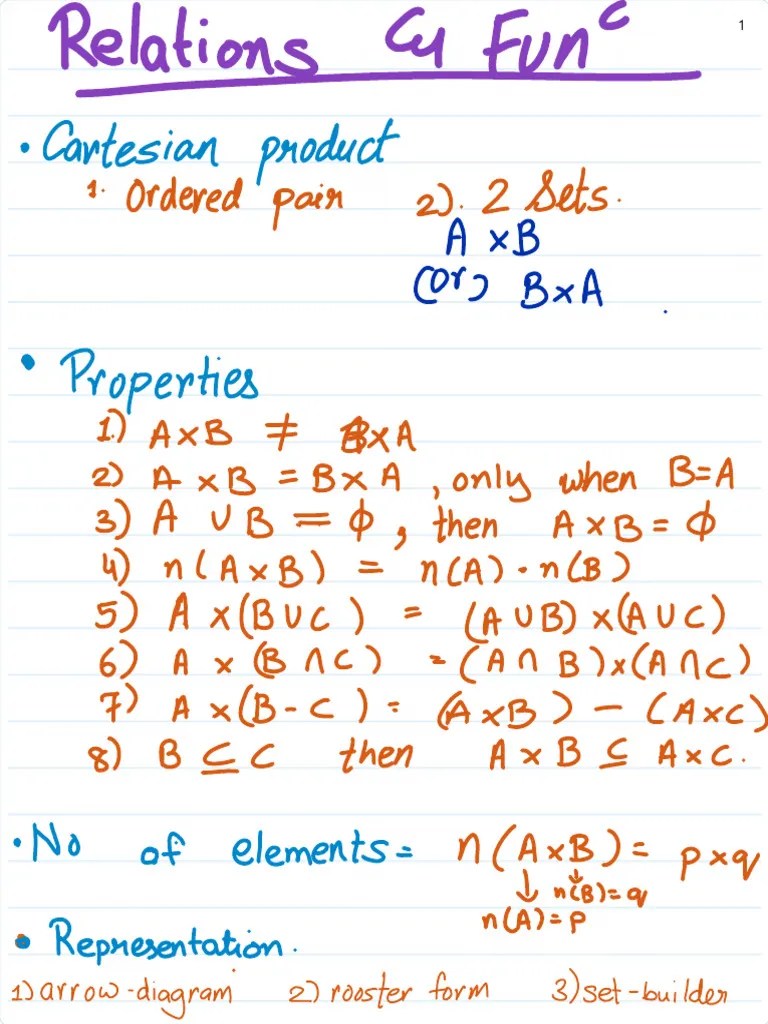 Relations & Func
1
• Cartesian product
1. Ordered pair 2). 2 Sets.
A × B
(or) B×A
• Properties
1) A×B ≠ B×A
2) A × B = B × A , only when B=A
3) A ∪ B = ϕ , then A × B = ϕ
4) n(A×B) = n(A) · n(B)
5) A ×(B∪C) = (A∪B)×(A∪C)
6) A × (B∩C) =(A∩B)×(A∩C)
7) A ×(B-C) = (A×B) – (A×C)
8) B ⊆ C then A × B ⊆ A×C.
• No of elements = n(A×B)= p×q
↓ ↓
n(B)=q
n(A)=p
• Representation.
1) arrow-diagram 2) rooster form 3) set-builder